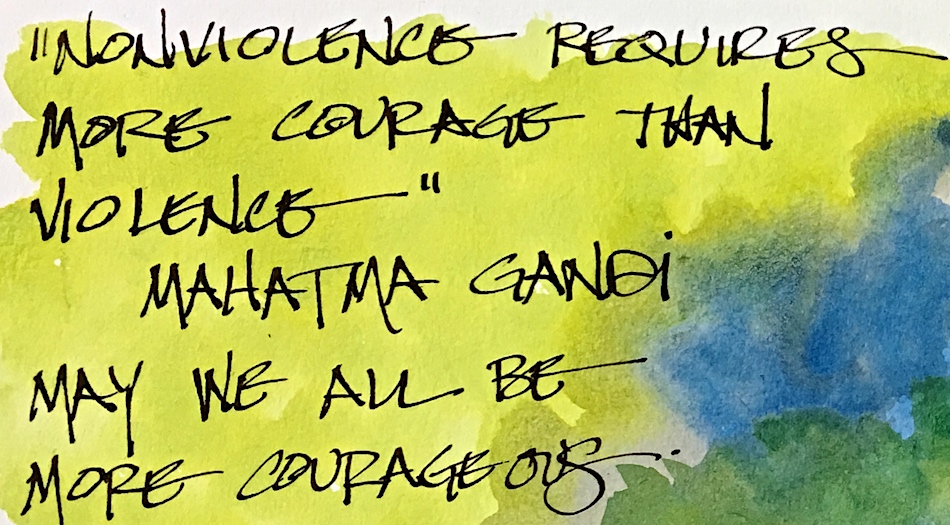 "NONVIOLENCE REQUIRES
MORE COURAGE THAN
VIOLENCE"
MAHATMA GANDI
MAY WE ALL BE
MORE COURAGEOUS.